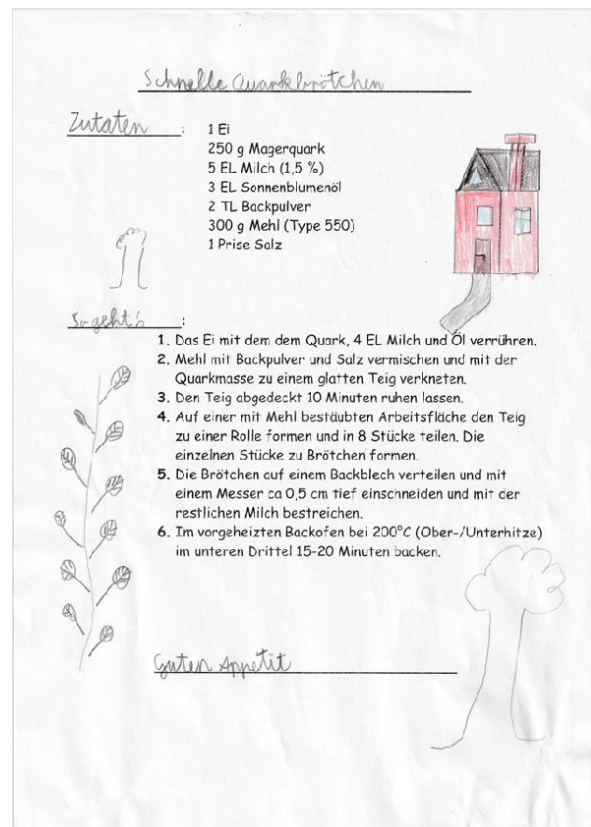 Schnelle Quarkbrötchen
Zutaten :
1 Ei
250 g Magerquark
5 EL Milch (1,5 %)
3 EL Sonnenblumenöl
2 TL Backpulver
300 g Mehl (Type 550)
1 Prise Salz
So geht's :
1. Das Ei mit dem dem Quark, 4 EL Milch und Öl verrühren.
2. Mehl mit Backpulver und Salz vermischen und mit der
Quarkmasse zu einem glatten Teig verkneten.
3. Den Teig abgedeckt 10 Minuten ruhen lassen.
4. Auf einer mit Mehl bestäubten Arbeitsfläche den Teig
zu einer Rolle formen und in 8 Stücke teilen. Die
einzelnen Stücke zu Brötchen formen.
5. Die Brötchen auf einem Backblech verteilen und mit
einem Messer ca 0,5 cm tief einschneiden und mit der
restlichen Milch bestreichen.
6. Im vorgeheizten Backofen bei 200°C (Ober-/Unterhitze)
im unteren Drittel 15-20 Minuten backen.
Guten Appetit